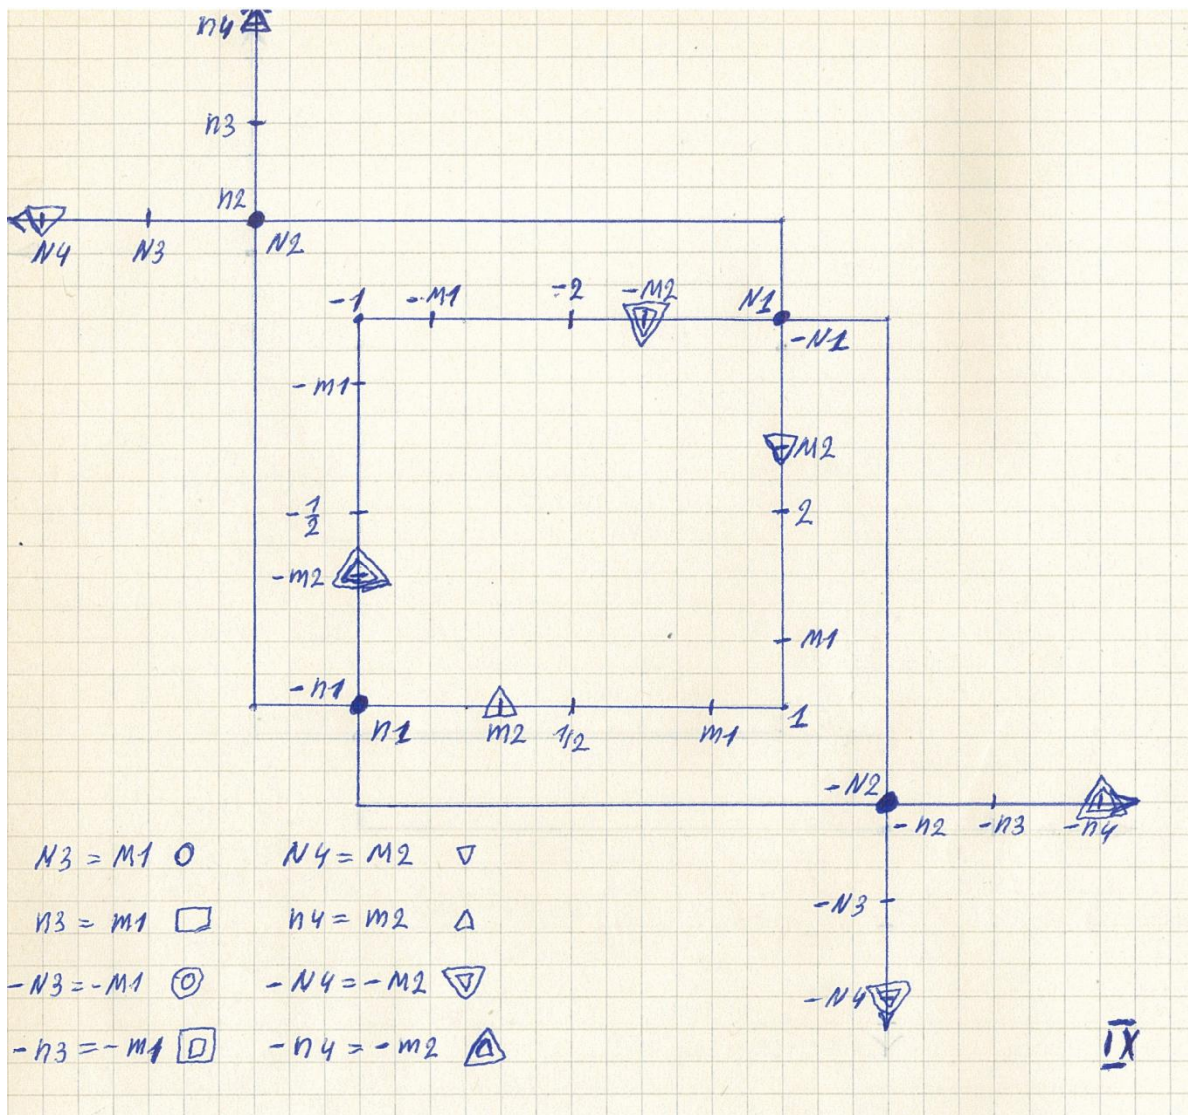 n4
n3
n2
N4 N3 N2
-1 -M1 -2 -M2 N1
-N1
-m1
M2
-1/2 2
-m2
M1
-n1
n1 m2 1/2 m1 1
-N2
-n2 -n3 -n4
N3 = M1 N4 = M2
-N3
n3 = m1 n4 = m2
-N3 = -M1 -N4 = -M2 -N4
-n3 = -m1 -n4 = -m2 IX